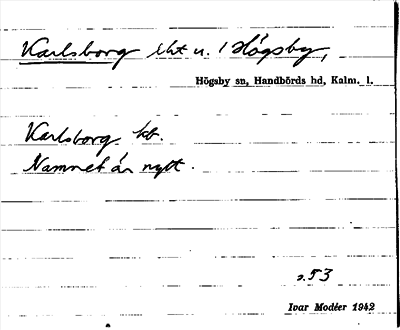 Karlsborg lht u. Högsby,
Högsby sn, Handbörds hd, Kalm. l.
Karlsborg kt.
Namnet är nytt.
s. 53
Ivar Modéer 1942